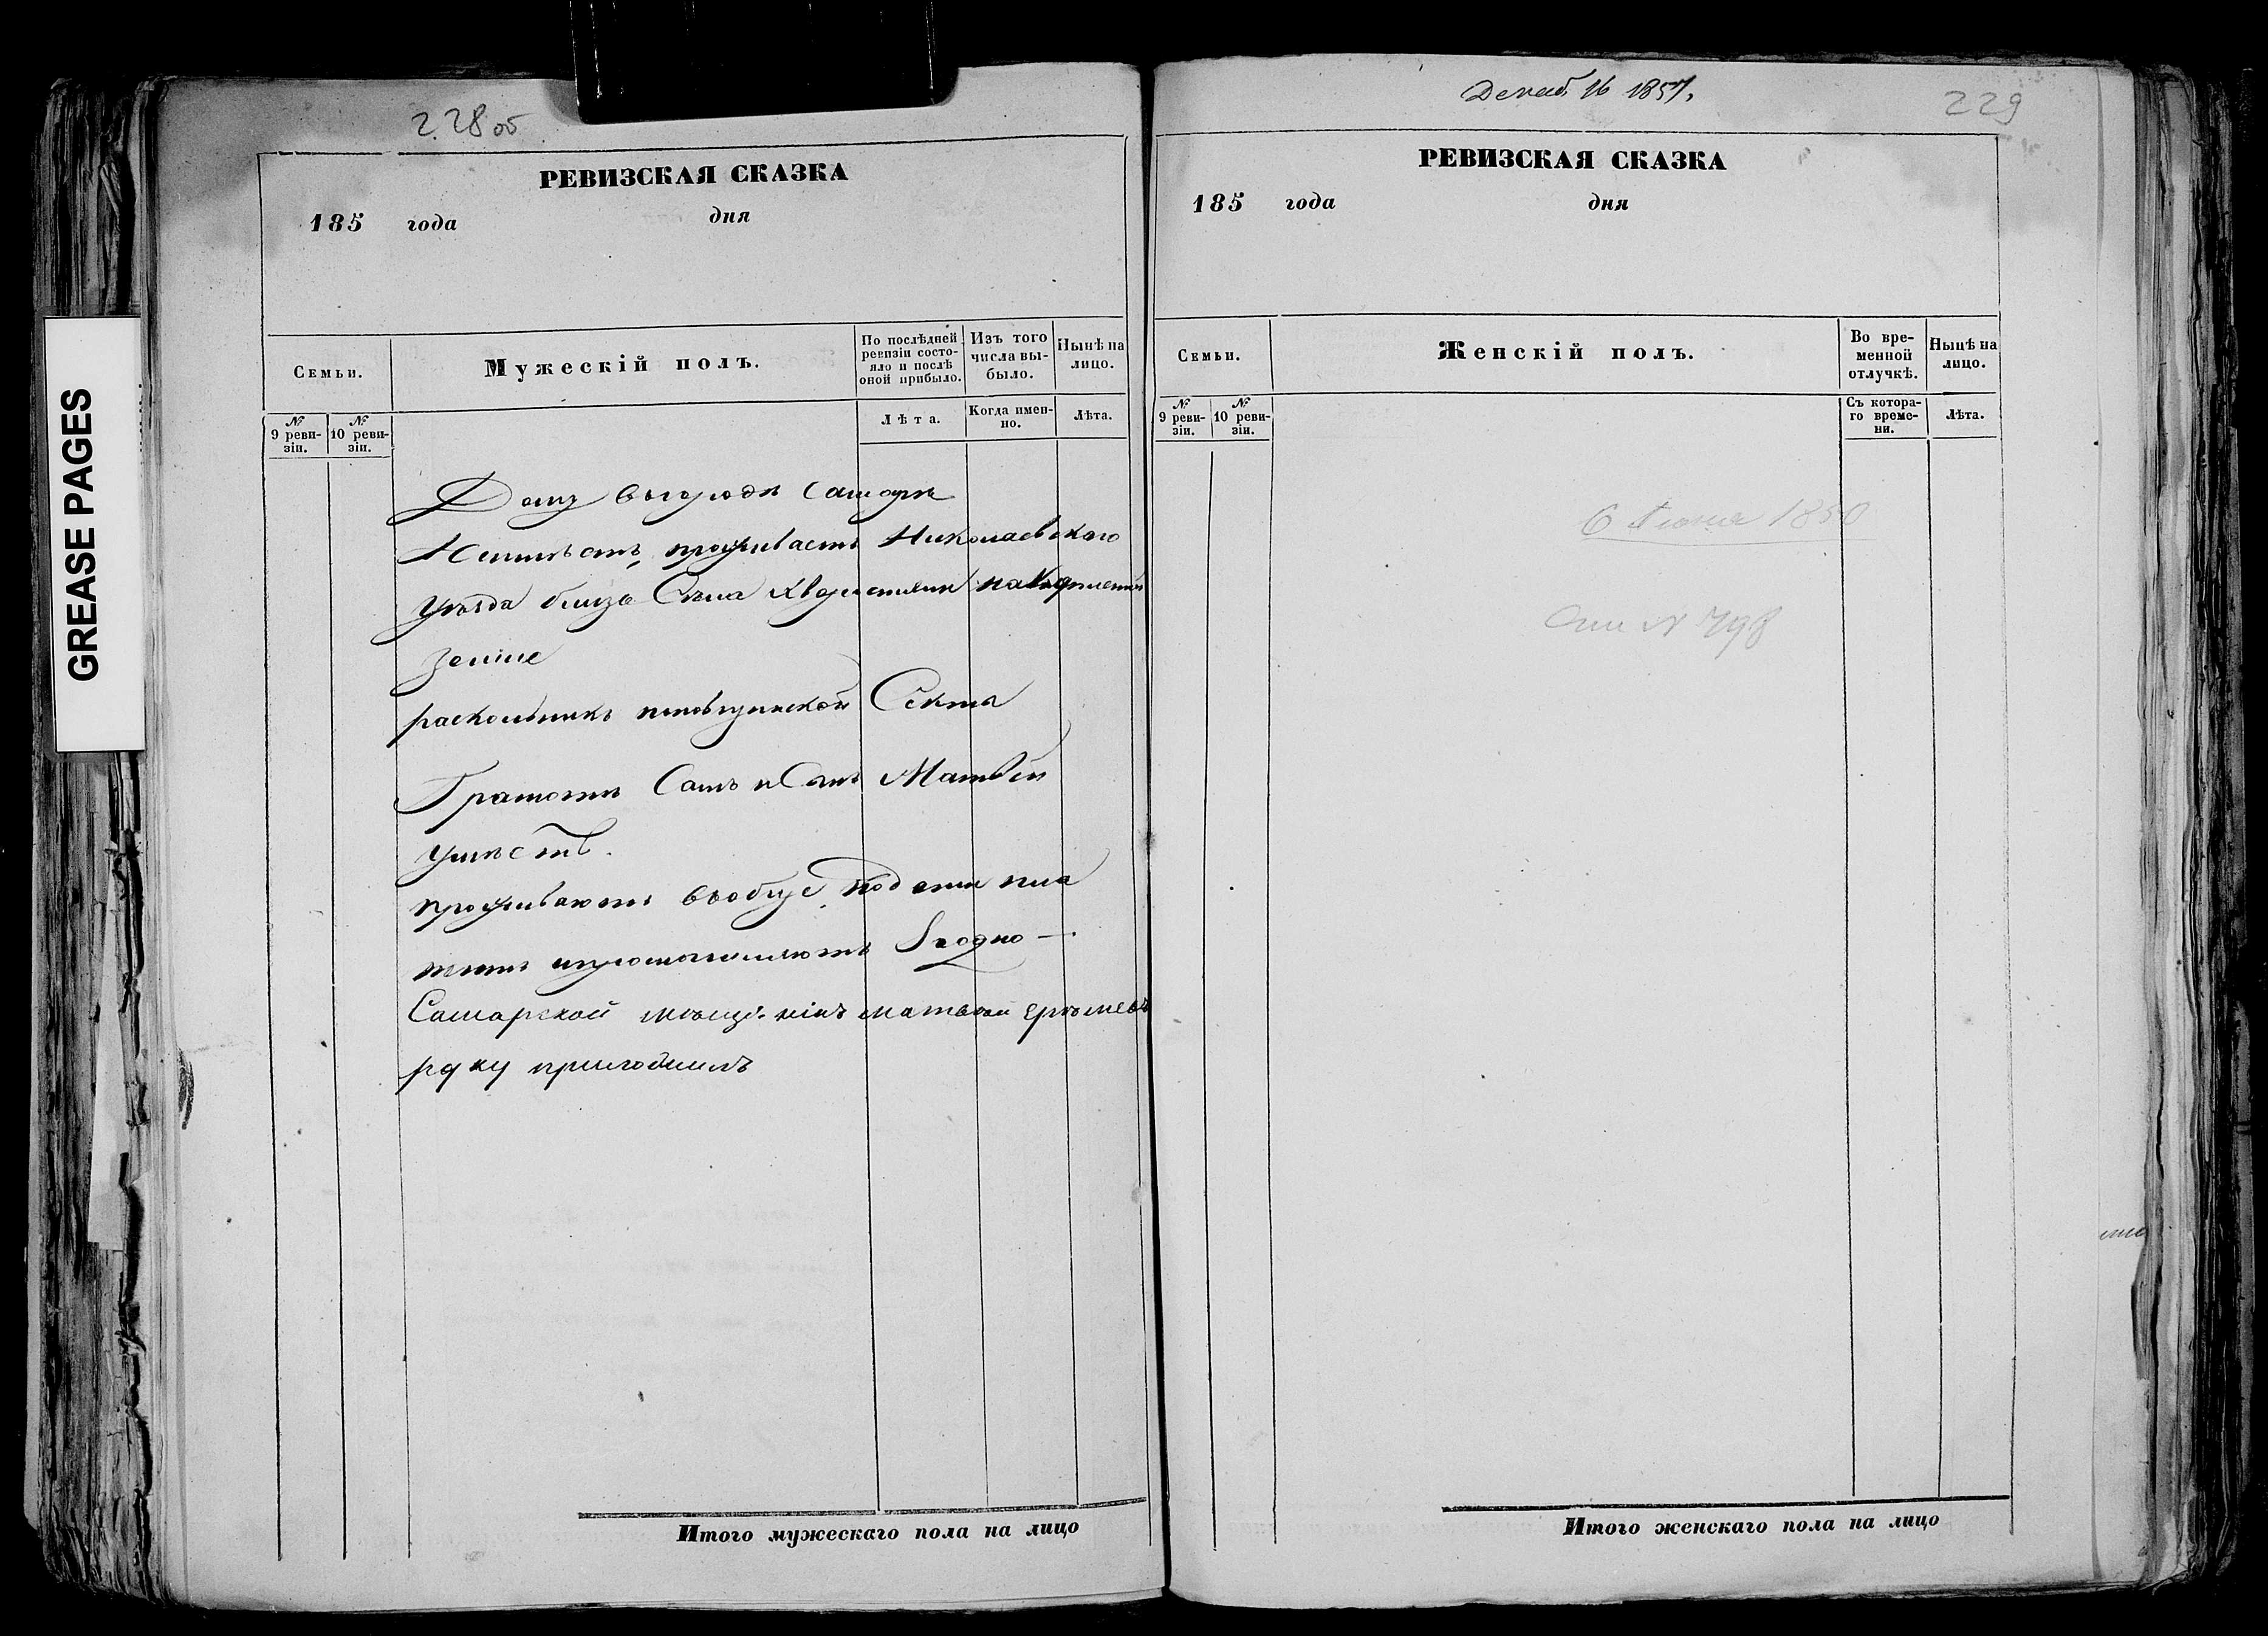 GREASE PAGES
228 об
РЕВИЗСКАЯ СКАЗКА
185 года дня
Семьи.
Мужескій полъ.
По послѣдней ревизіи состо-
яло и послѣ
оной прибыло.
Изъ того
числа вы-
было.
Нынѣ на
лицо.
№ 9 реви-
зіи.
№ 10 реви-
зіи.
Лѣта.
Когда имен-
но.
Лѣта.
Дому въ городѣ Самарѣ
Неимѣетъ, проживаетъ Николаевскаго
уѣзда близь Села
земле
раскольникъ Секты
Грамотѣ Самъ и Сынъ Матвѣй
умѣетъ.
проживаютъ вообще, подати пла
тятъ
Самарской мещенінъ матвей
руку приложилъ
Итого мужескаго пола на лицо
Декаб. 16 1857.
229
РЕВИЗСКАЯ СКАЗКА
185 года дня
Семьи.
Женскій полъ.
Во вре-
менной
отлучкѣ.
Нынѣ на
лицо.
№ 9 реви-
зіи.
№ 10 реви-
зіи.
Съ котора-
го време-
ни.
Лѣта.
6 1850
№ 798
Итого женскаго пола на лицо